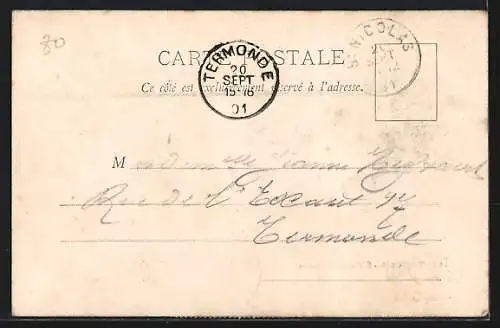 80
CARTE POSTALE
Ce côté est exclusivement réservé à l'adresse.
TERMONDE
20
SEPT
15-16
01
ST NICOLAS
20
SEPT
Mademoiselle Jeanne
Rue de l'Escaut
Termonde